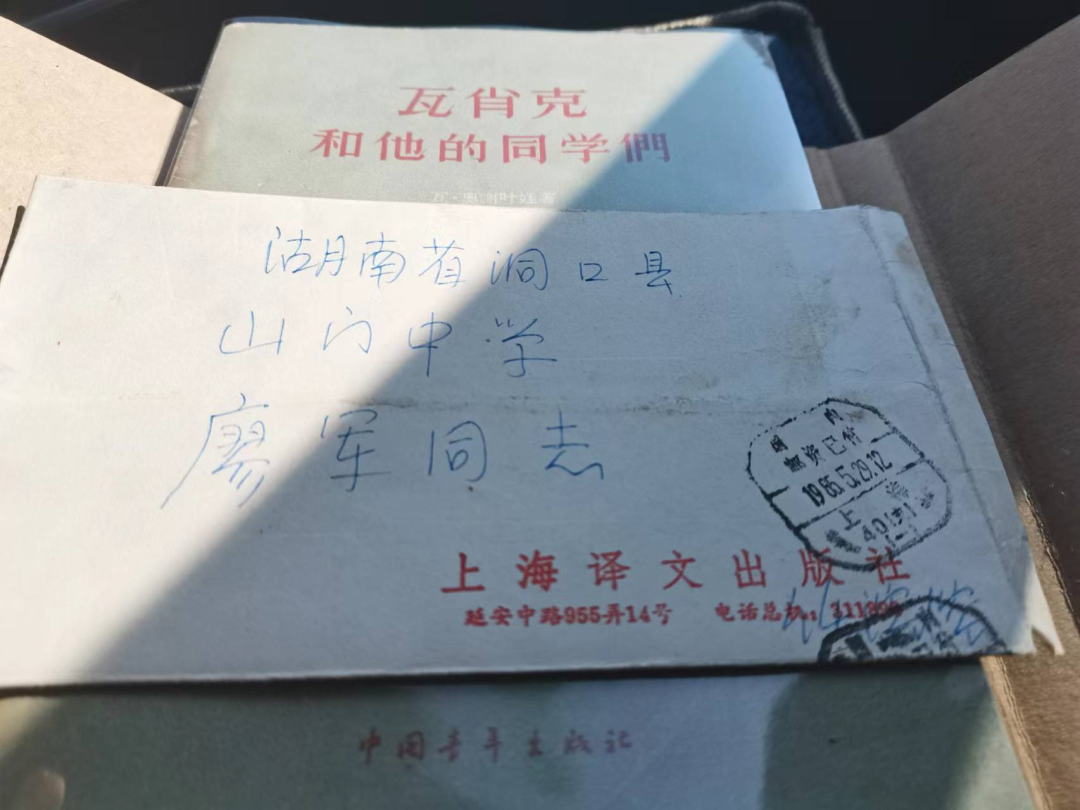 瓦肖克
和他的同学們
湖南省洞口县
山门中学
廖军同志
国内
邮资已付
1985.5.29.12
上海
上海译文出版社
延安中路955弄14号 电话总机:
中国青年出版社